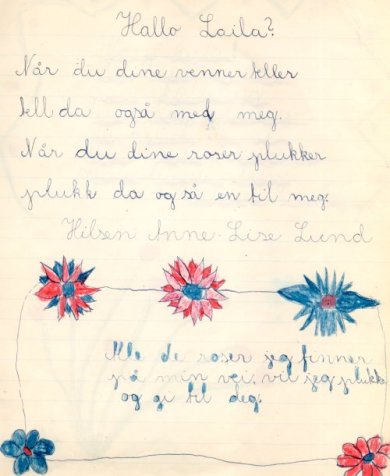 Hallo Laila?
Når du dine venner teller
tell da også med meg.
Når du dine roser plukker
plukk da også en til meg.
Hilsen Anne-Lise Lund
Alle de roser jeg finner
på min vei, vil jeg plukke
og gi til deg.